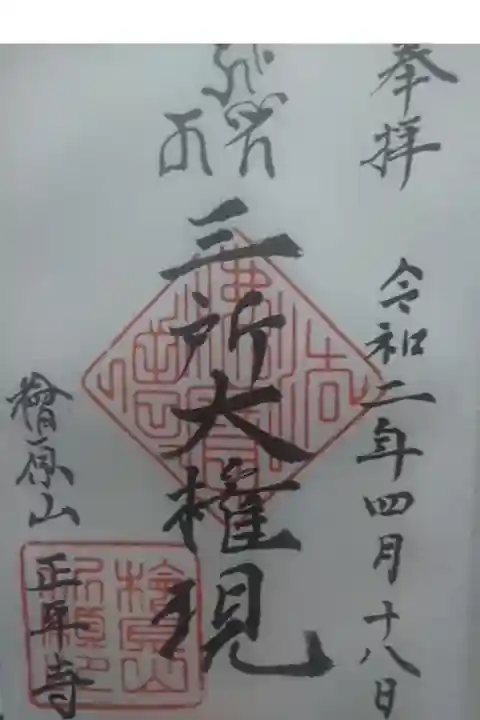 奉拝
令和二年四月十八日
三所大権現
檜原山
正平寺